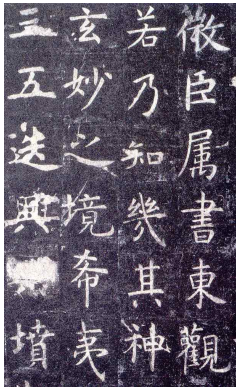 微臣属書東觀
若乃知幾其神
玄妙之境希夷
三五迭興墳